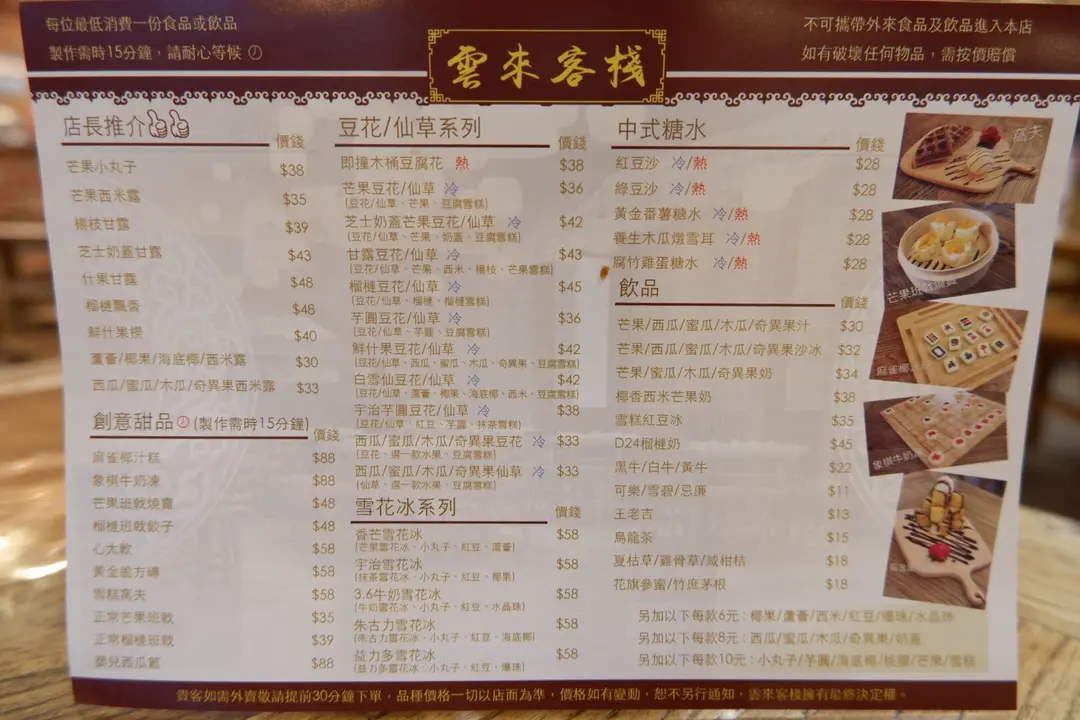 每位最低消費一份食品或飲品
製作需時15分鐘，請耐心等候
雲來客棧
不可攜帶外來食品及飲品進入本店
如有破壞任何物品，需按價賠償
店長推介 價錢
芒果小丸子 $38
芒果西米露 $35
楊枝甘露 $39
芝士奶蓋甘露 $43
什果甘露 $48
榴槤飄香 $48
鮮什果撈 $40
蘆薈/椰果/海底椰/西米露 $30
西瓜/蜜瓜/木瓜/奇異果西米露 $33
創意甜品 (製作需時15分鐘) 價錢
麻雀椰汁糕 $88
象棋牛奶凍 $88
芒果班戟燒賣 $48
榴槤班戟餃子 $48
心太軟 $58
黃金脆方磚 $58
雪糕窩夫 $58
正常芒果班戟 $35
正常榴槤班戟 $39
嬰兒西瓜籃 $88
豆花/仙草系列 價錢
即撞木桶豆腐花 熱 $38
芒果豆花/仙草 冷 $36
(豆花/仙草、芒果、豆腐雪糕)
芝士奶蓋芒果豆花/仙草 冷 $42
(豆花/仙草、芒果、奶蓋、豆腐雪糕)
甘露豆花/仙草 冷 $43
(豆花/仙草、芒果、西米、楊枝、芒果雪糕)
榴槤豆花/仙草 冷 $45
(豆花/仙草、榴槤、榴槤雪糕)
芋圓豆花/仙草 冷 $36
(豆花/仙草、芋圓、豆腐雪糕)
鮮什果豆花/仙草 冷 $42
(豆花/仙草、西瓜、蜜瓜、木瓜、奇異果、豆腐雪糕)
白雪仙豆花/仙草 冷 $42
(豆花/仙草、蘆薈、椰果、海底椰、西米、豆腐雪糕)
宇治芋圓豆花/仙草 冷 $38
(豆花/仙草、紅豆、芋圓、抹茶雪糕)
西瓜/蜜瓜/木瓜/奇異果豆花 冷 $33
(豆花、選一款水果、豆腐雪糕)
西瓜/蜜瓜/木瓜/奇異果仙草 冷 $33
(仙草、選一款水果、豆腐雪糕)
雪花冰系列 價錢
香芒雪花冰 $58
(芒果雪花冰、小丸子、紅豆、蘆薈)
宇治雪花冰 $58
(抹茶雪花冰、小丸子、紅豆、椰果)
3.6牛奶雪花冰 $58
(牛奶雪花冰、小丸子、紅豆、水晶珠)
朱古力雪花冰 $58
(朱古力雪花冰、小丸子、紅豆、海底椰)
益力多雪花冰 $58
(益力多雪花冰、小丸子、紅豆、爆珠)
中式糖水 價錢
紅豆沙 冷/熱 $28
綠豆沙 冷/熱 $28
黃金番薯糖水 冷/熱 $28
養生木瓜燉雪耳 冷/熱 $28
腐竹雞蛋糖水 冷/熱 $28
飲品 價錢
芒果/西瓜/蜜瓜/木瓜/奇異果汁 $30
芒果/西瓜/蜜瓜/木瓜/奇異果沙冰 $32
芒果/蜜瓜/木瓜/奇異果奶 $34
椰香西米芒果奶 $38
雪糕紅豆冰 $35
D24榴槤奶 $45
黑牛/白牛/黃牛 $22
可樂/雪碧/忌廉 $11
王老吉 $13
烏龍茶 $15
夏枯草/雞骨草/咸柑桔 $18
花旗參蜜/竹庶茅根 $18
另加以下每款6元：椰果/蘆薈/西米/紅豆/爆珠/水晶珠
另加以下每款8元：西瓜/蜜瓜/木瓜/奇異果/奶蓋
另加以下每款10元：小丸子/芋圓/海底椰/桃膠/芒果/雪糕
窩夫
芒果班戟燒賣
麻雀椰
象棋牛奶
貴客如需外賣敬請提前30分鐘下單，品種價格一切以店面為準，價格如有變動，恕不另行通知，雲來客棧擁有最終決定權。